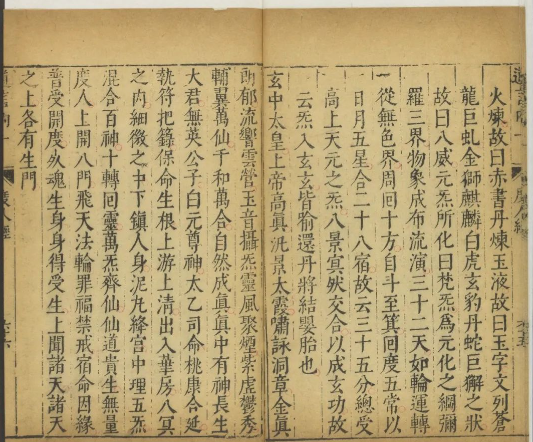 火煉故曰赤書丹煉玉液故曰玉字文列蒼
龍巨虬金獅麒麟白虎玄豹丹蛇巨獬之狀
故曰八威元炁所化曰梵炁爲元化之綱彌
羅三界物象成布流演三十二天如輪運轉
從無色界周回十方自斗至箕回度五常以
日月五星合二十八宿故云三十五分總受
高上天元之炁八景冥然交合以成玄功故
云炁入玄玄皆隃還丹將結嬰胎也
玄中太皇上帝高眞汎景太霞嘯詠洞章金眞
朗郁流響雲營玉音攝炁靈風聚煙紫虛鬱秀
輔翼萬仙千和萬合自然成眞眞中有神長生
大君無英公子白元尊神太乙司命桃康合延
執符把籙保命生根上游上清出入華房八冥
之內細微之中下鎭人身泥丸絳宮中理五炁
混合百神十轉回靈萬炁齊仙仙道貴生無量
度人上開八門飛天法輪罪福禁戒宿命因緣
普受開度死魂生身身得受生上聞諸天諸天
之上各有生門